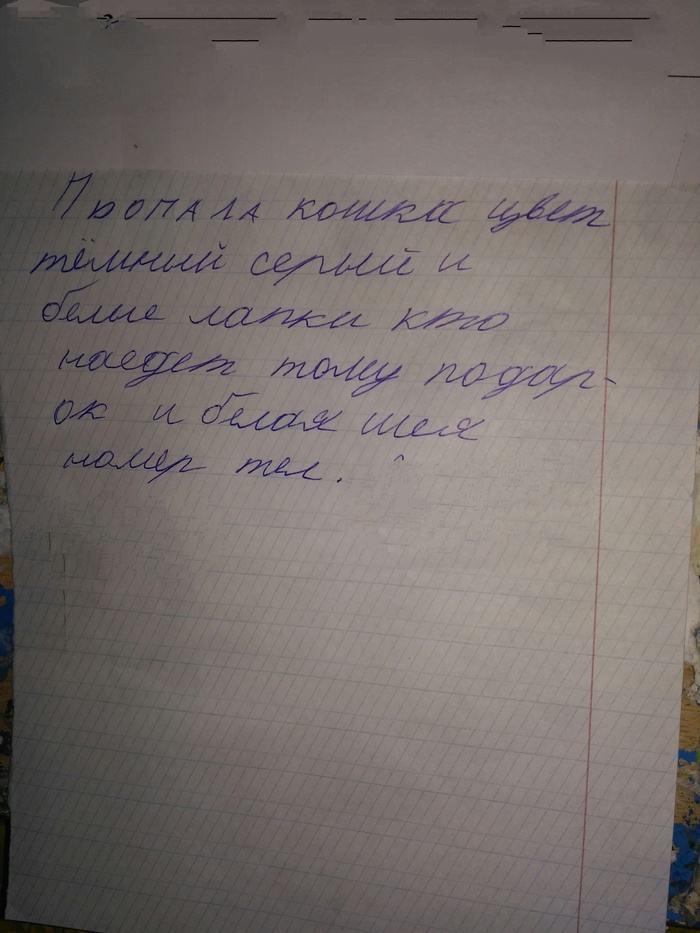 Пропала кошка цвет
тёмный серый и
белые лапки кто
наедет тому подар-
ок и белая шея
номер тел.